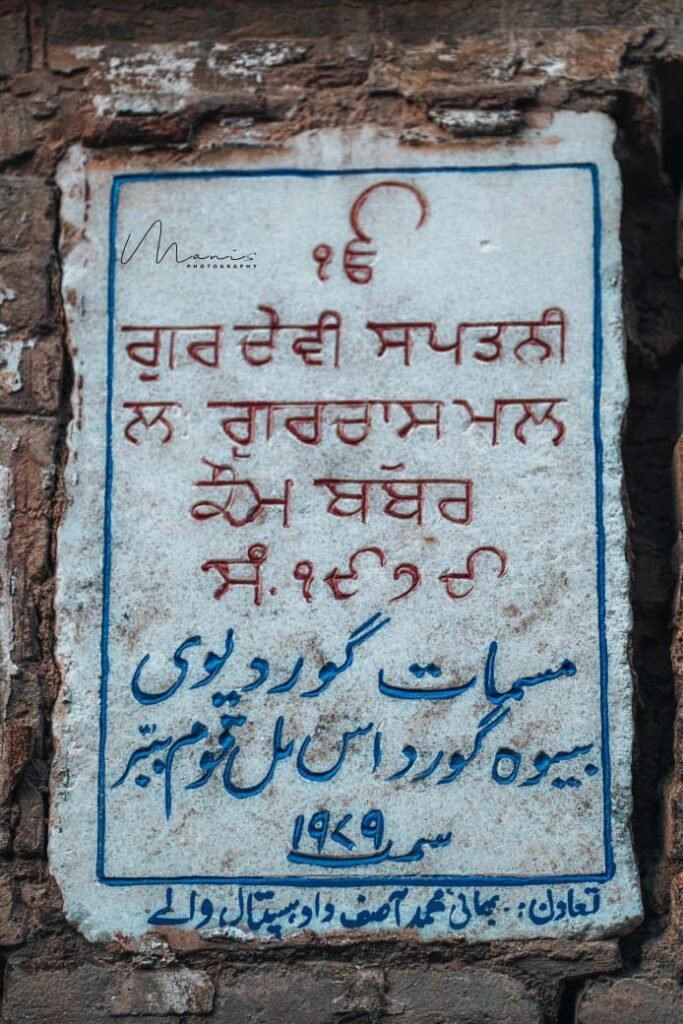 Manis
PHOTOGRAPHY
ੴ
ਗੁਰ ਦੇਵੀ ਸਪਤਨੀ
ਲ ਗੁਰਦਾਸ ਮਲ
ਕੌਮ ਬੱਬਰ
ਸੰ. ੧੯੭੯
مسمات گوردیوی
بیوہ گورداس مل قوم ببّر
سمت ۱۹۷۹
تعاون:۔ بھائی محمد آصف داود ہسپتال والے